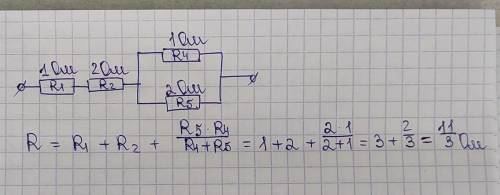 1Ом
R4
1Ом 2Ом
R1 R2
2Ом
R5
R = R1 + R2 + R5·R4/R4+R5 = 1+2+ 2·1/2+1 = 3+ 2/3 = 11/3 Ом